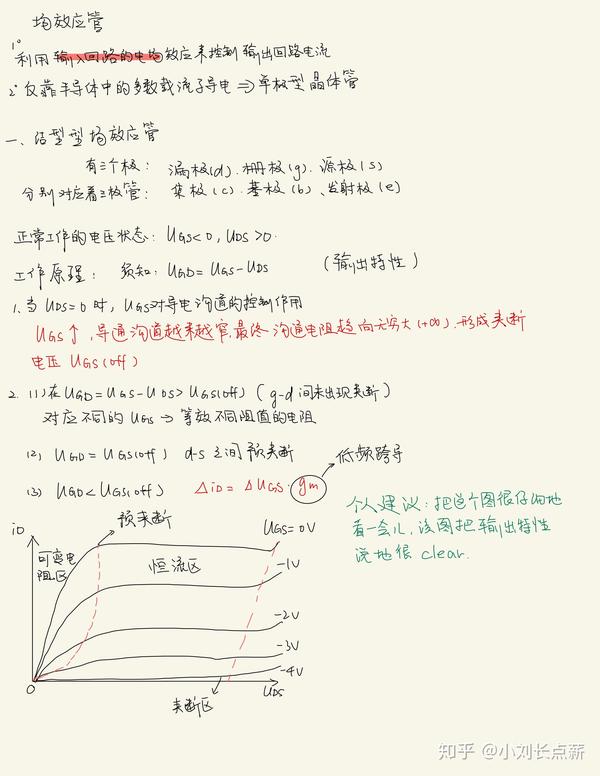 场效应管
1° 利用输入回路的电场效应来控制输出回路电流
2° 仅靠半导体中的多数载流子导电 => 单极型晶体管
一、结型型场效应管
有三个极: 漏极(d). 栅极(g). 源极(s)
分别对应着三极管: 集极(c). 基极(b)、发射极(e)
正常工作的电压状态: UGS<0, UDS>0.
工作原理: 须知: UGD=UGS-UDS (输出特性)
1. 当UDS=0时, UGS对导电沟道的控制作用
UGS↑, 导通沟道越来越窄, 最终沟道电阻趋向无穷大(+∞). 形成夹断
电压 UGS(off)
2. (1) 在UGD=UGS-UDS>UGS(off) (g-d间未出现夹断)
对应不同的UGS → 等效不同阻值的电阻
(2) UGD=UGS(off) d-s之间预夹断
低频跨导
(3) UGD<UGS(off) ΔiD=ΔUGS·gm
个人建议: 把这个图很仔细地
看一会儿, 该图把输出特性
说地很 clear.
iD
预夹断
可变电
阻区
恒流区
UGS=0V
-1V
-2V
-3V
-4V
0
UDS
夹断区
知乎 @小刘长点薪